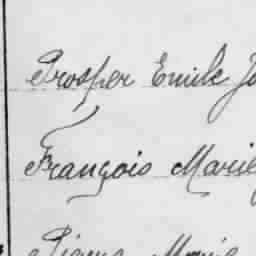 Prosper Emile Jo
François Marie
Pierre Marie